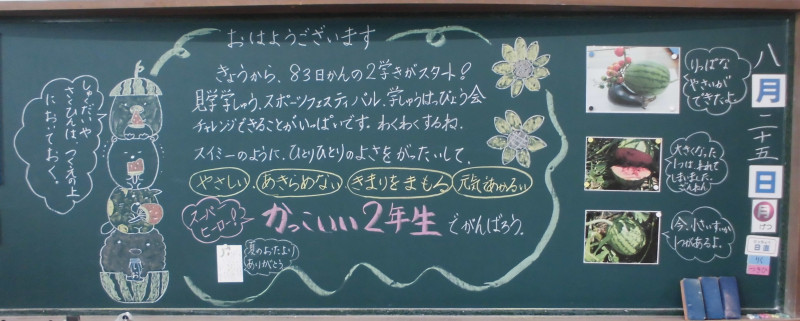 おはようございます
きょうから、83日かんの2学きがスタート!
見学学しゅう、スポーツフェスティバル、学しゅうはっぴょう会
チャレンジできることがいっぱいです。わくわくするね。
スイミーのように、ひとりひとりのよさをがったいして、
やさしい あきらめない きまりをまもる 元気であかるい
スーパーヒーロー! かっこいい2年生 でがんばろう。
夏のおたより
ありがとう
しゅくだいや
さくひんは、つくえの上
において おく。
りっぱな
やさいが
できたよ
大きくなった
1つは、われて
しまいました。
ざんねん
今、小さいすいか
1つがあるよ。
八月二十五日
月
日直